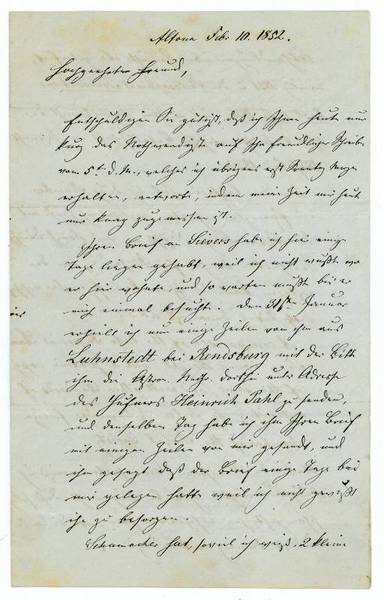 Altona Feb. 10. 1852.
Hochgeehrter Freund,
Entschuldigen Sie gütigst, daß ich Ihnen heute nur
kurz das Nothwendigste auf Ihr freundliches Schreiben
vom 5.t d. M., welches ich übrigens erst
erhalten, antworte, indem meine Zeit mir heute
nur kurz zugemessen ist.
Ihren Brief an Sievers habe ich hier einige
Tage liegen gehabt, weil ich nicht wußte wo
er hier wohnte, und so warten mußte bis er
mich einmal besuchte. Den 31sten Januar
erhielt ich nur einige Zeilen von ihm aus
Luhnstedt bei Rendsburg mit der Bitte
ihm die Astron. Nachr. dorthin unter Adresse
des Hufners Heinrich Pahl zu senden,
und denselben Tag habe ich ihm Ihren Brief
mit einigen Zeilen von mir gesandt, und
ihm gesagt daß der Brief einige Tage bei
mir gelegen hatte weil ich nicht gewußt
ihn zu besorgen.
Schumacher hat, soviel ich weiß, 2 kleine